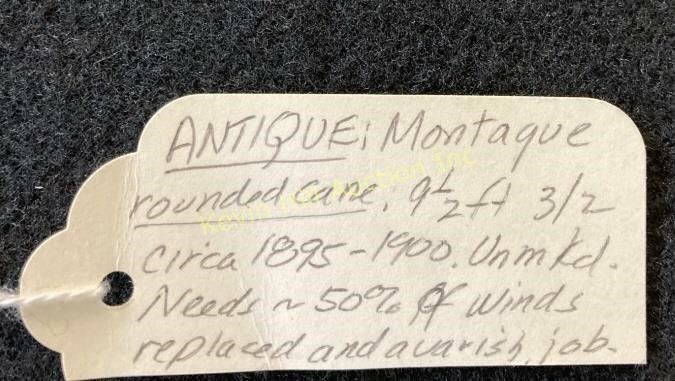 ANTIQUE; Montague
rounded cane. 9 1/2 ft 3/2
circa 1895-1900. Unmkd.
Needs ~ 50% of winds
replaced and avarish job.